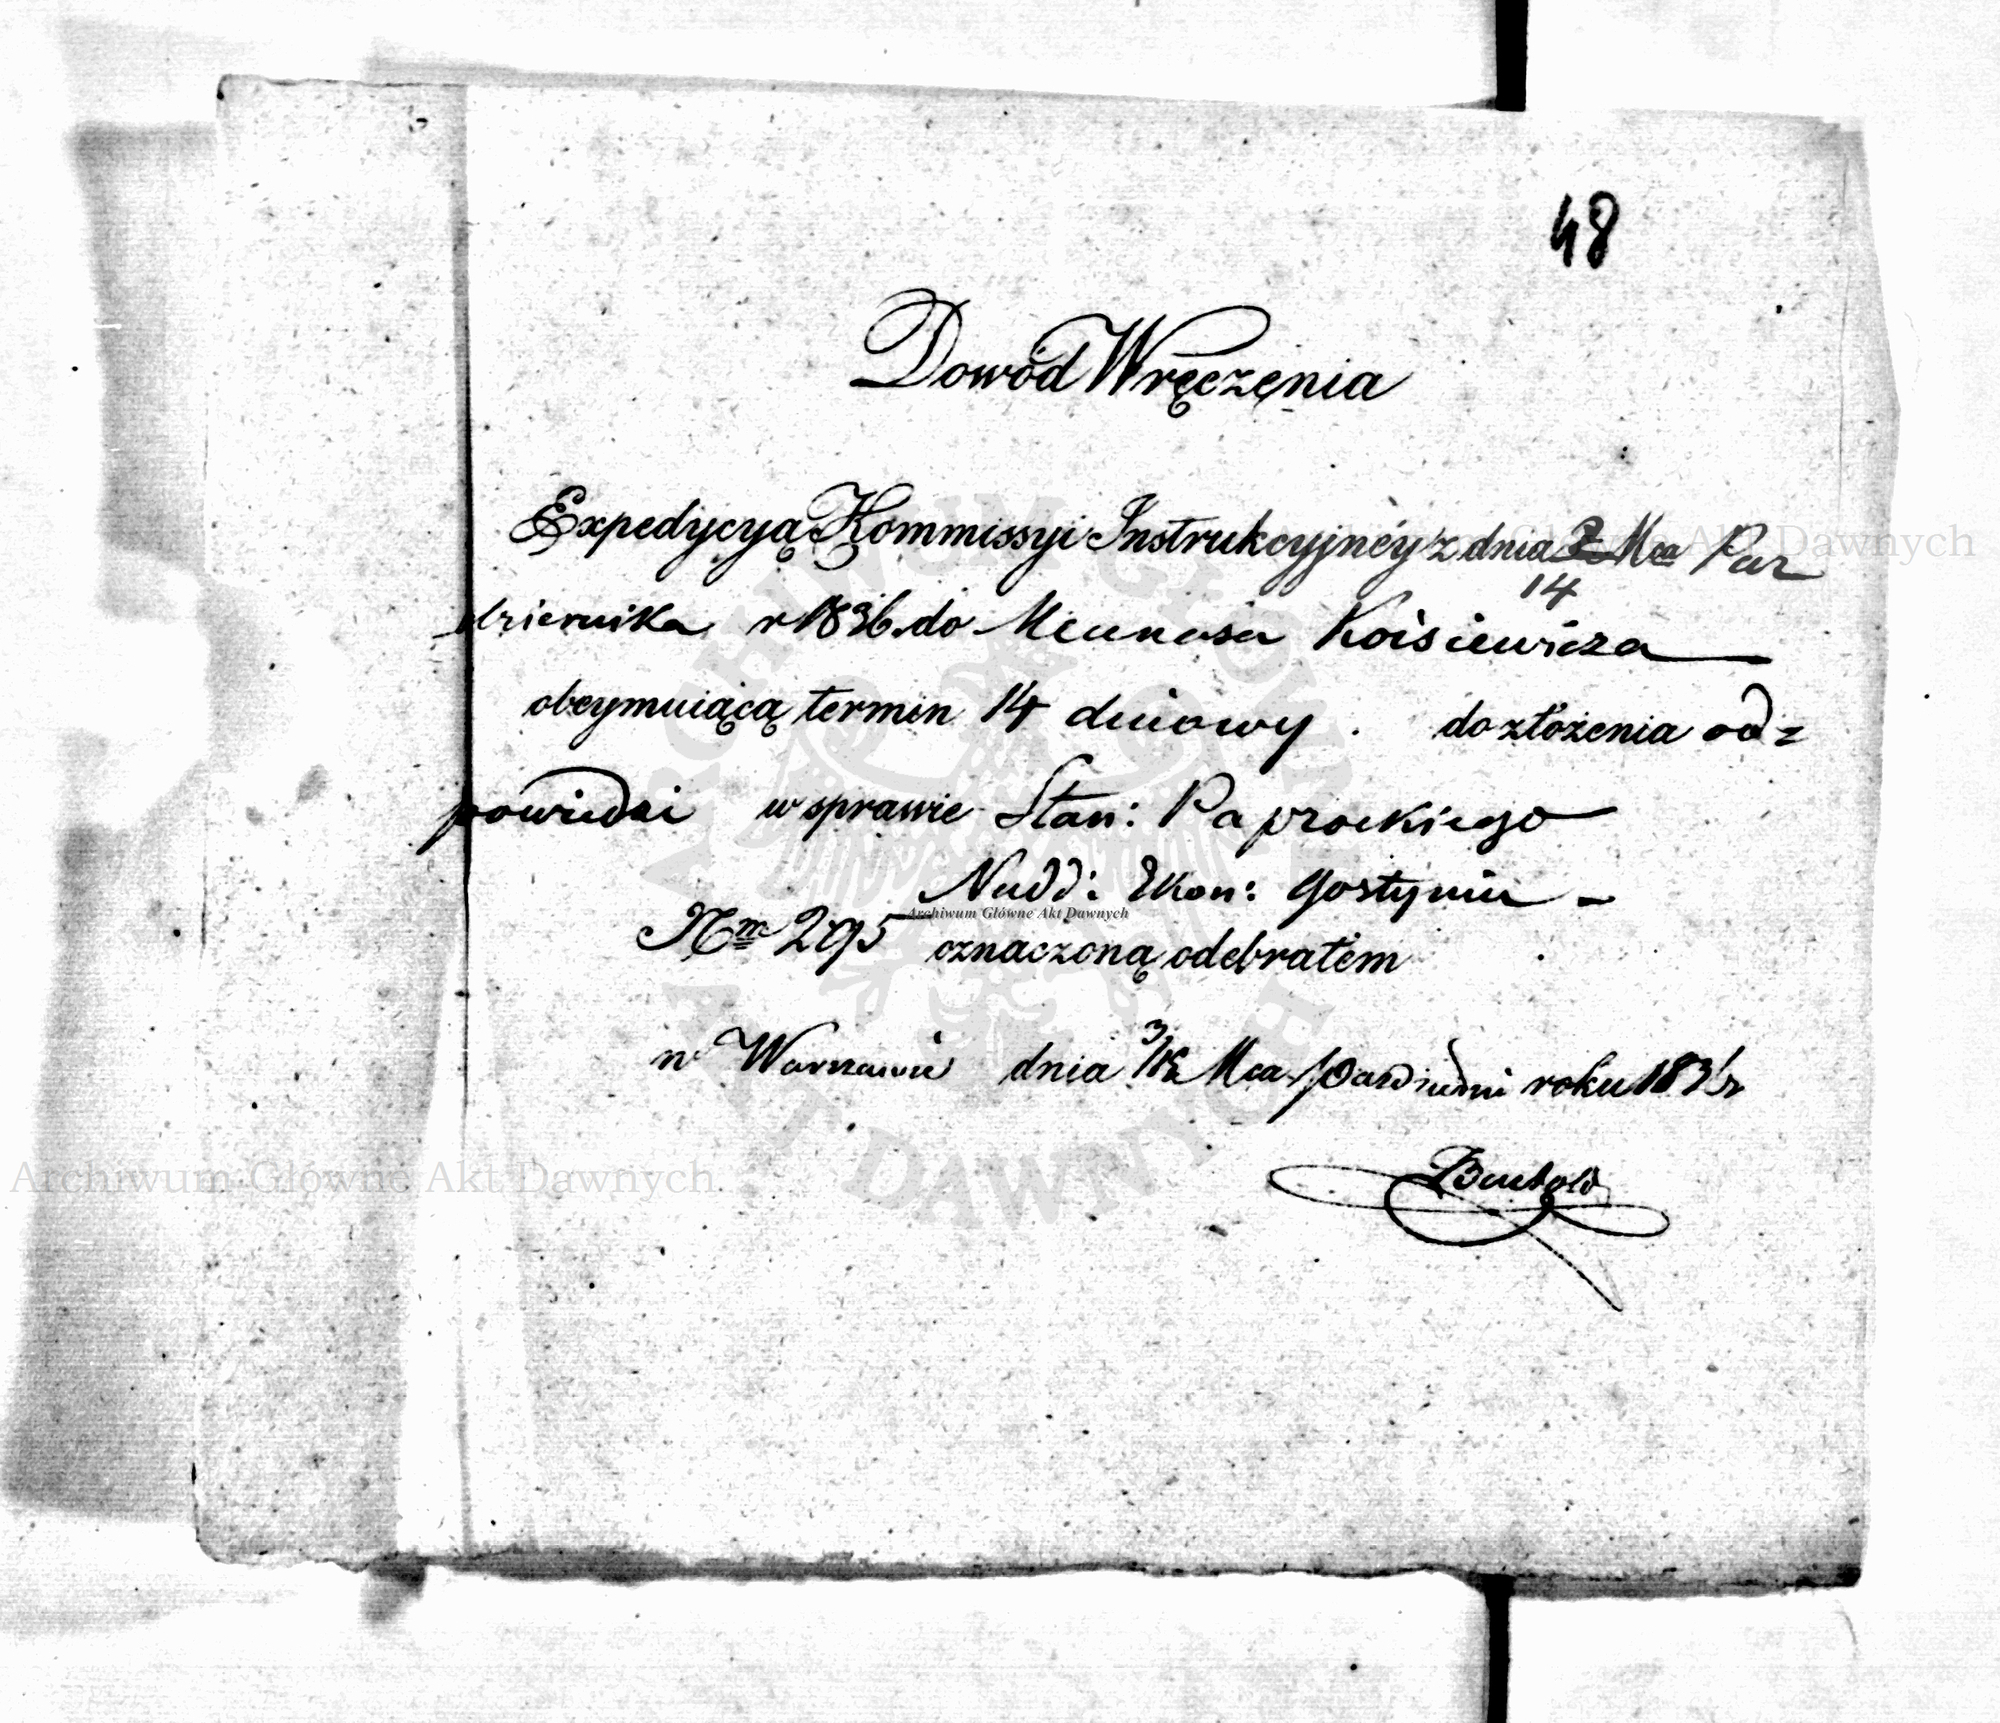 48
Dowód Wręczenia
Expedycyą Kommissyi Instrukcyjnéy z dnia 2 Mca Paz
14
dziernika r 1836. do Koisiewicza
obeymuiącą termin 14 dniowy . do złożenia od=
powiedzi w sprawie Stan: Paprockiego
Nadd: Ekon: Gostynin -
Nrm 295 oznaczoną odebrałem
w Warszawie dnia 3/15 Mca roku 183
Archiwum Główne Akt Dawnych
Archiwum Główne Akt Dawnych
Archiwum Główne Akt Dawnych
ARCHIWUM GŁÓWNE AKT DAWNYCH